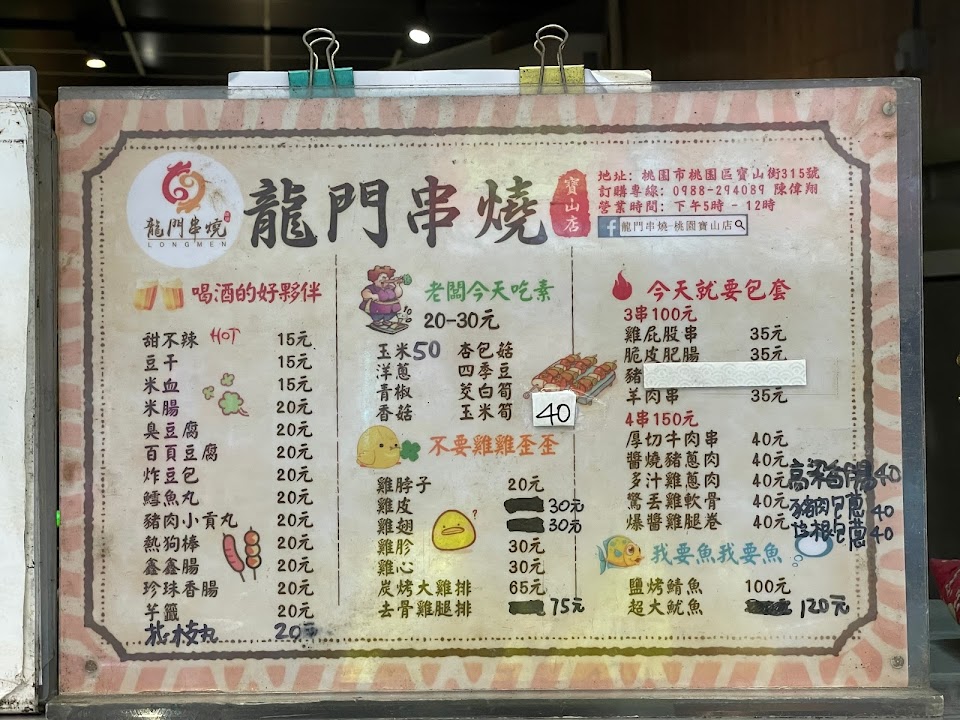 龍門串燒
LONGMEN
龍門串燒
寶山店
地址: 桃園市桃園區寶山街315號
訂購專線: 0988-294089 陳偉翔
營業時間: 下午5時 - 12時
f 龍門串燒-桃園寶山店
喝酒的好夥伴
甜不辣 HOT 15元
豆干 15元
米血 15元
米腸 20元
臭豆腐 20元
百頁豆腐 20元
炸豆包 20元
鱈魚丸 20元
豬肉小貢丸 20元
熱狗棒 20元
鑫鑫腸 20元
珍珠香腸 20元
芋籤 20元
花枝丸 20元
老闆今天吃素
20-30元
玉米50 杏包菇
洋蔥 四季豆
青椒 茭白筍
香菇 玉米筍 40
不要雞雞歪歪
雞脖子 20元
雞皮 30元
雞翅 30元
雞胗 30元
雞心 30元
炭烤大雞排 65元
去骨雞腿排 75元
今天就要包套
3串100元
雞屁股串 35元
脆皮肥腸 35元
豬
羊肉串 35元
4串150元
厚切牛肉串 40元
醬燒豬蔥肉 40元
多汁雞蔥肉 40元
驚丟雞軟骨 40元
爆醬雞腿卷 40元
高粱香腸40
豬肉包蔥 40
培根包蔥40
我要魚我要魚
鹽烤鯖魚 100元
超大魷魚 120元